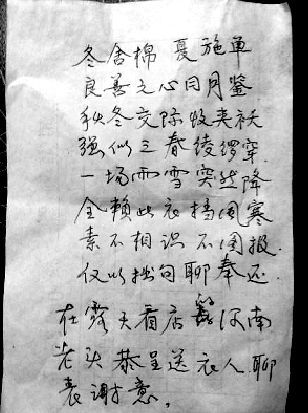 冬舍棉 夏施单
良善之心日月鉴
秋冬交际收夹袄
强似三春绫缪穿
一场雨雪突然降
全赖此衣挡风寒
素不相识不图报
仅以拙句聊奉还
在露天看店 河南
老头恭呈送衣人聊
表谢意。